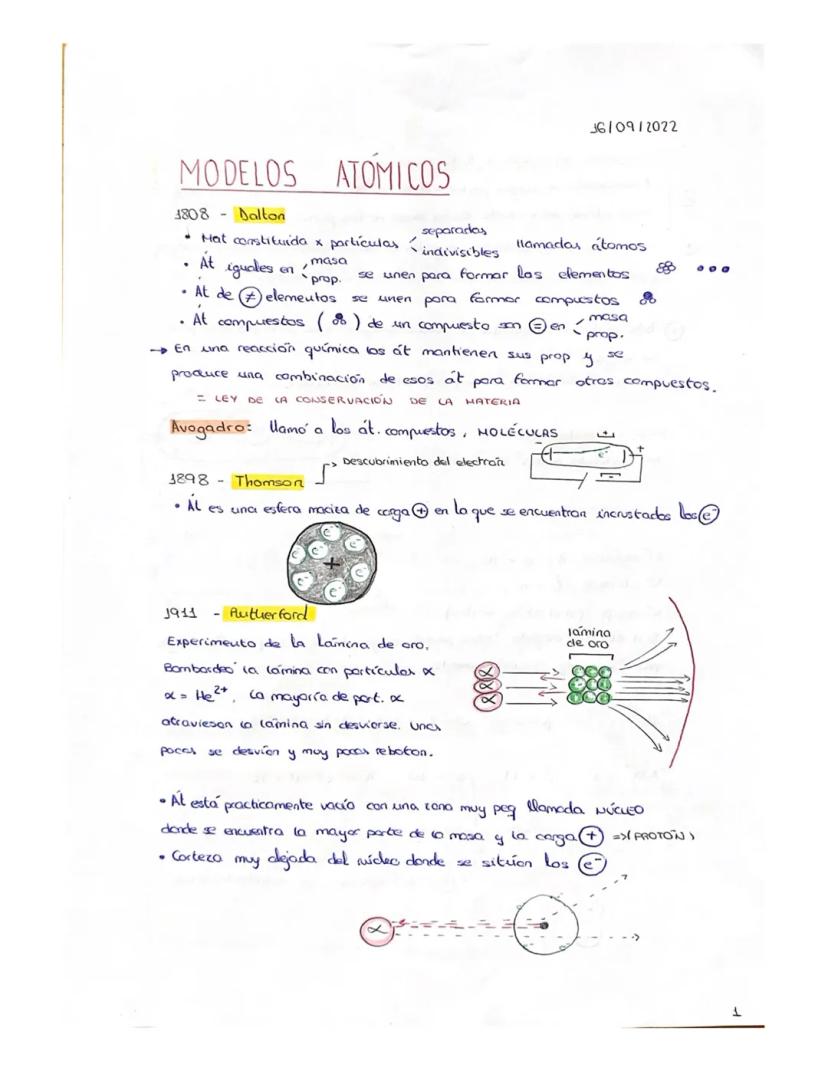 16/09/2022
MODELOS ATÓMICOS
1808 - Dalton
• Mat constituida x partículas separadas indivisibles llamadas átomos
• Át iguales en masa prop. se unen para formar los elementos
• Át de ≠ elementos se unen para formar compuestos
• Át compuestos ( ) de un compuesto son = en masa prop.
→ En una reacción química los át mantienen sus prop y se
produce una combinación de esos át para formar otros compuestos.
= LEY DE LA CONSERVACIÓN DE LA MATERIA
Avogadro: llamó a los át. compuestos, MOLÉCULAS
Descubrimiento del electrón
1898 - Thomson
• Át es una esfera maciza de carga + en la que se encuentran incrustados los e⁻
1911 - Rutherford
Experimento de la lámina de oro.
Bombardeó la lámina con partículas α
α = He²⁺. La mayoría de part. α
atraviesan la lámina sin desviarse. Unas
pocas se desvían y muy pocas rebotan.
lámina
de oro
α
α
α
• Át está practicamente vacío con una zona muy peq llamada NÚCLEO
donde se encuentra la mayor parte de la masa y la carga + => (PROTÓN)
• Corteza muy alejada del núcleo donde se sitúan los e⁻
α
1